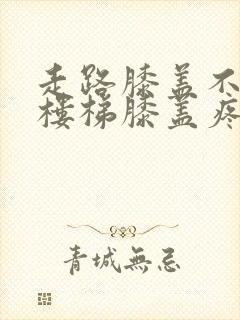 走路膝盖不
楼梯膝盖疼
青城無忌